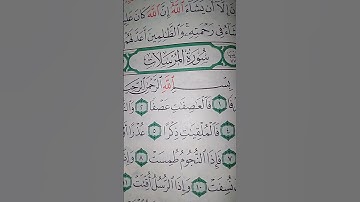 إِلَّآ أَن يَشَآءَ ٱللَّهُ إِنَّ ٱللَّهَ كَانَ
فِى رَحْمَتِهِۦ وَٱلظَّٰلِمِينَ أَعَدَّ لَهُمْ
سُورَةُ الْمُرْسَلَاتِ
بِسْمِ ٱللَّهِ ٱلرَّحْمَٰنِ
١ فَٱلْعَٰصِفَٰتِ عَصْفًا ٢
٤ فَٱلْمُلْقِيَٰتِ ذِكْرًا ٥ عُذْرًا
٧ فَإِذَا ٱلنُّجُومُ طُمِسَتْ ٨
نُسِفَتْ ١٠ وَإِذَا ٱلرُّسُلُ أُقِّتَتْ